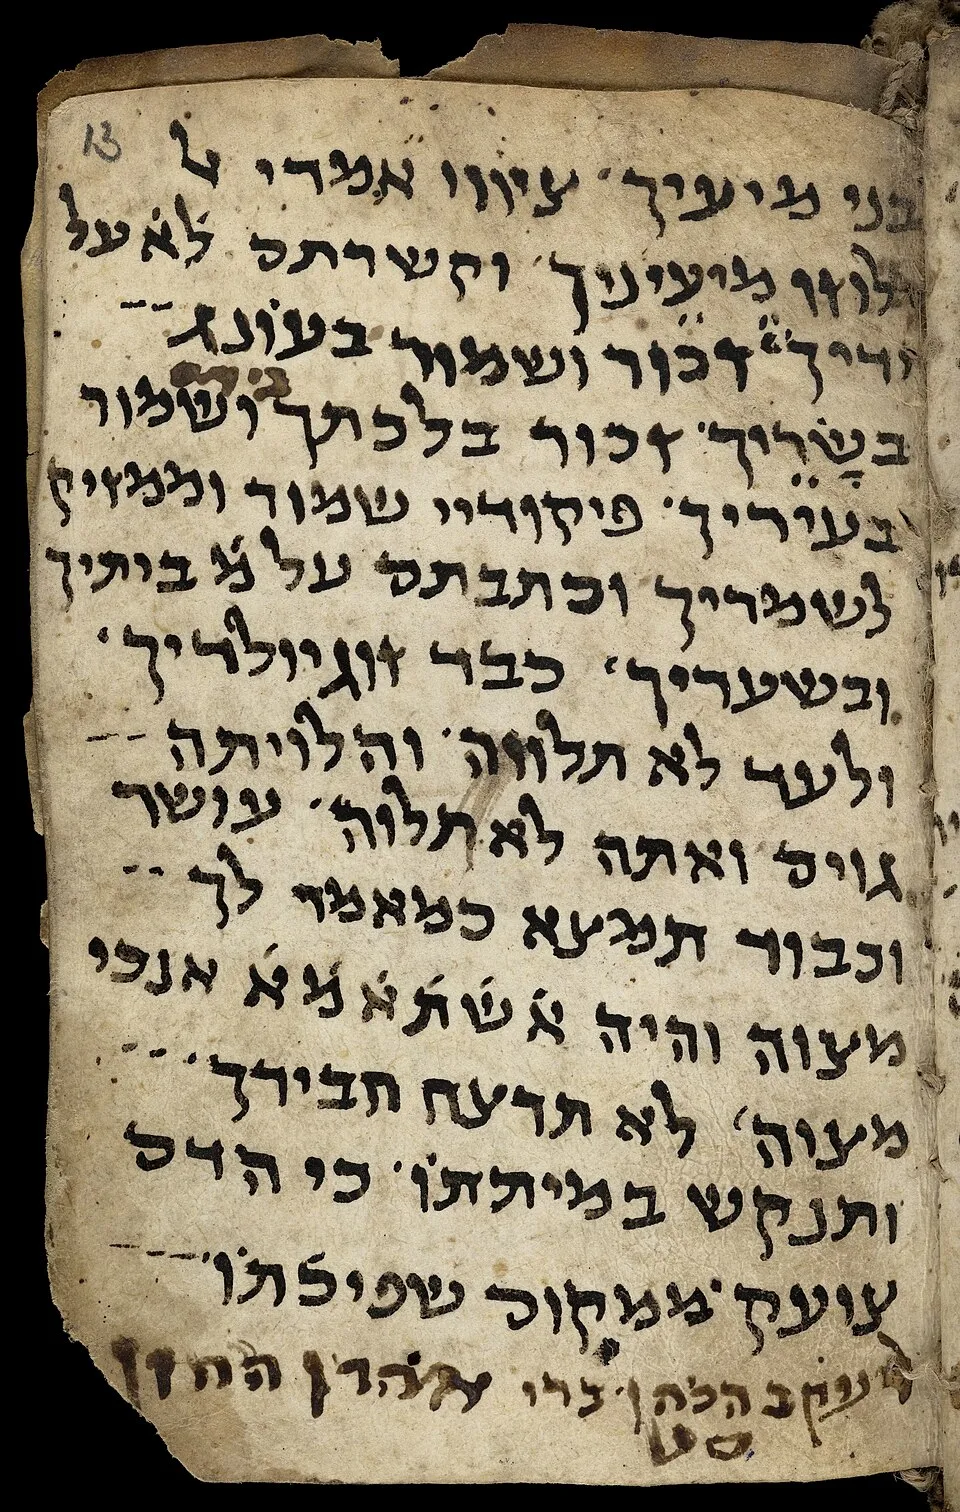 13
בני מיעיך׳ ציווי אמרי ל
ילוזו מיעיניך׳ וקשרתם לא על
ידיך׳ זכור ושמור בעונג
בשריך׳ זכור בלכתך ושמור
בעיריך׳ פיקודיי שמור וממזיק
לשמריך וכתבתם על מ ביתיך
ובשעריך׳ כבד זוג יולדיך׳
ולעד לא תלווה׳ והלויתה
גוים ואתה לא תלוה׳ עושר
וכבוד תמצא כמאמר לך
מצוה והיה אשתאמא אנכי
מצוה׳ לא תרצח חבירך
ותנקש במיתתו׳ כי הדם
צועק ממקום שפיכתו׳
יעקב הכהן ברי אהרן החזן